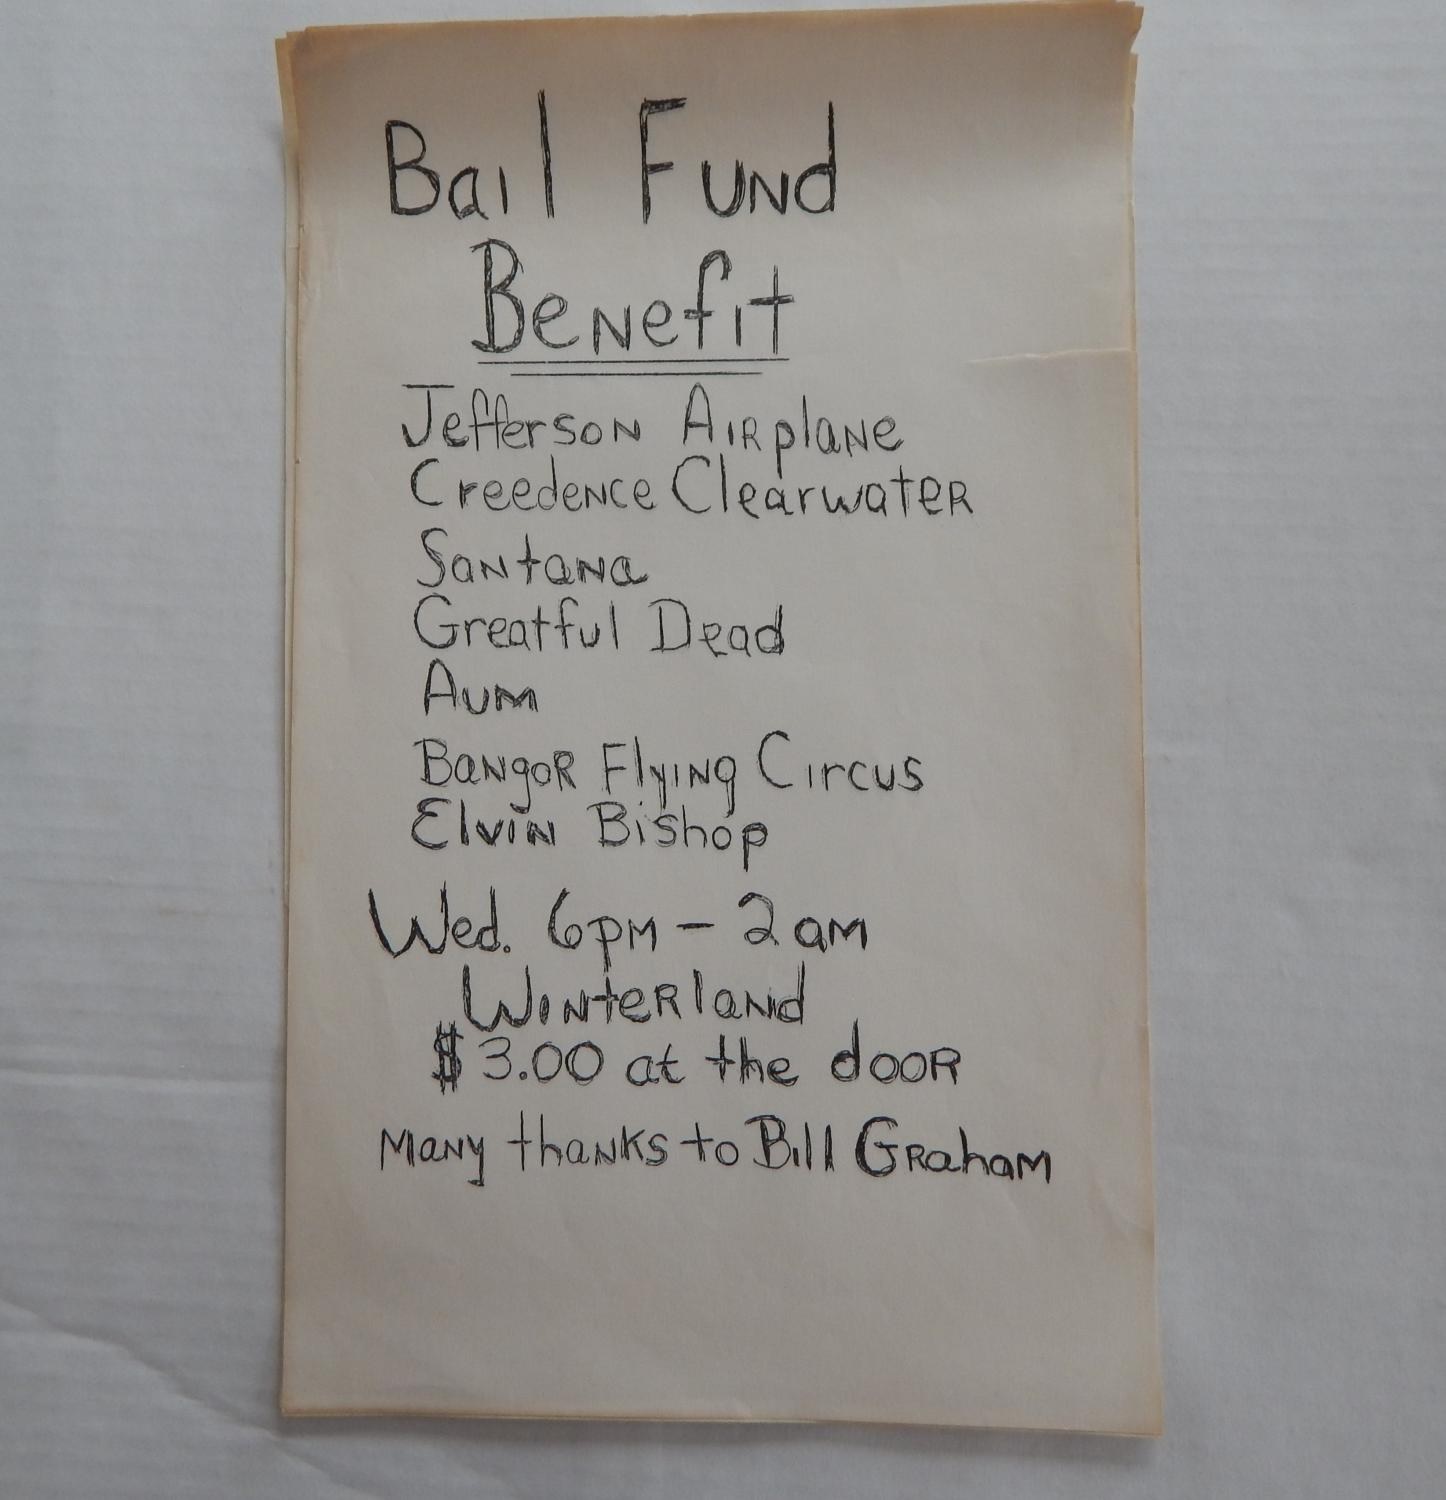 Bail Fund
Benefit
Jefferson Airplane
Creedence Clearwater
Santana
Greatful Dead
Aum
Bangor Flying Circus
Elvin Bishop
Wed. 6pm - 2am
Winterland
$3.00 at the door
Many thanks to Bill Graham